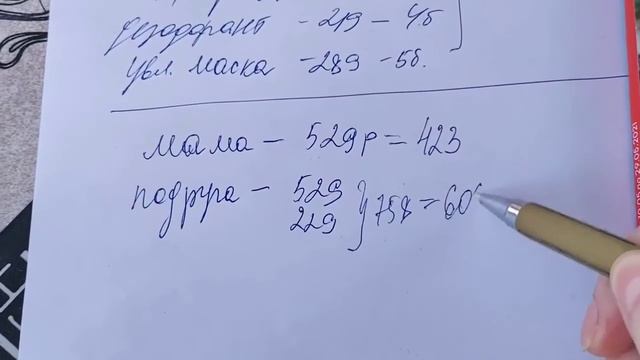 дезодорант - 219 - 4б
увл. маска - 289 - 5б.
мама - 529р = 423
подруга - 529
229 } 758 = 60